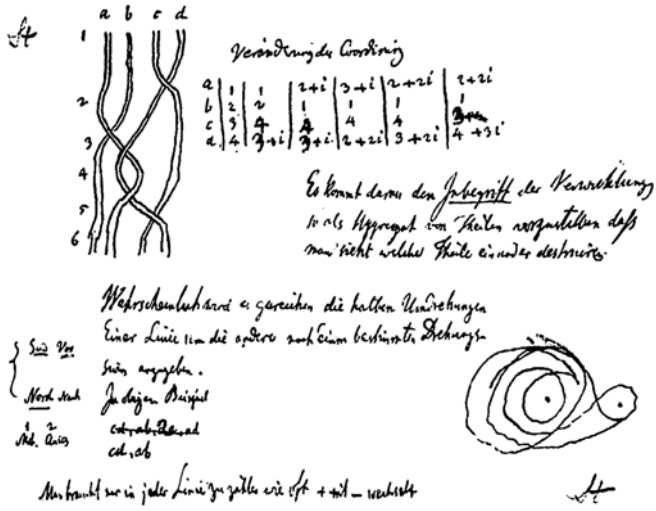 a b c d
1
2
3
4
5
6
Veränderung der Coordinirung
a 1 1 2+i 3+i 2+2i 2+2i
b 2 2 1 1 1 1
c 3 4 4 4 4
d 4 3+i 3+i 2+2i 3+2i 4+3i
Es kommt darauf den Inbegriff der Verwicklung
so als Aggregat von Theilen vorzustellen daß
man sieht welche Theile einander destruiren.
Wahrscheinlich wird es zureichen die halben Umdrehungen
Einer Linie um die andere nach einem bestimmten Drehungs-
sinn angegeben.
Süd Vor
Nord Nach
In obigem Beispiel
1 2
cd, ab
Man braucht nur in jeder Linie zu zählen wie oft + mit − wechselt